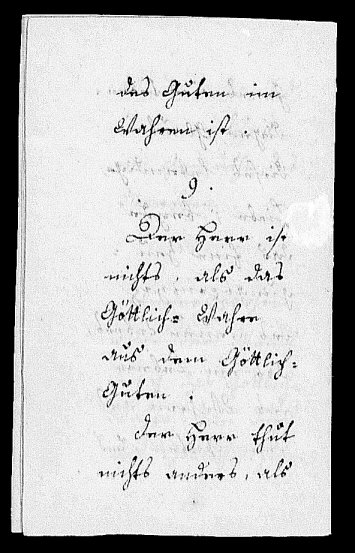 des Guten im
Wahren ist.
9.
Der Herr ist
nichts, als das
Göttlich= Wahre
aus dem Göttlich=
Guten.
Der Herr thut
nichts anders, als